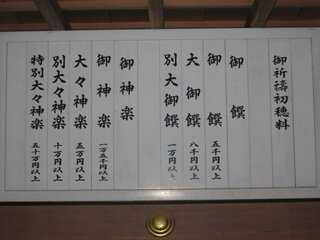 御祈祷初穂料
御饌
御饌 五千円以上
大御饌 八千円以上
別大御饌 一万円以上
御神楽
御神楽 一万五千円以上
大々神楽 五万円以上
別大々神楽 十万円以上
特別大々神楽 五十万円以上